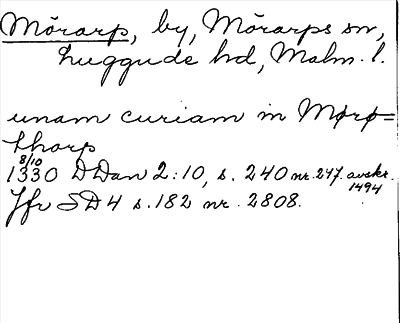 Mörarp, by, Mörarps sn,
Luggude hd, Malm. l.
unam curiam in Mørø=
thorp
8/10
1330 DDan 2:10, s. 240 nr. 247. avskr. 1494
Jfr SD 4 s. 182 nr. 2808.